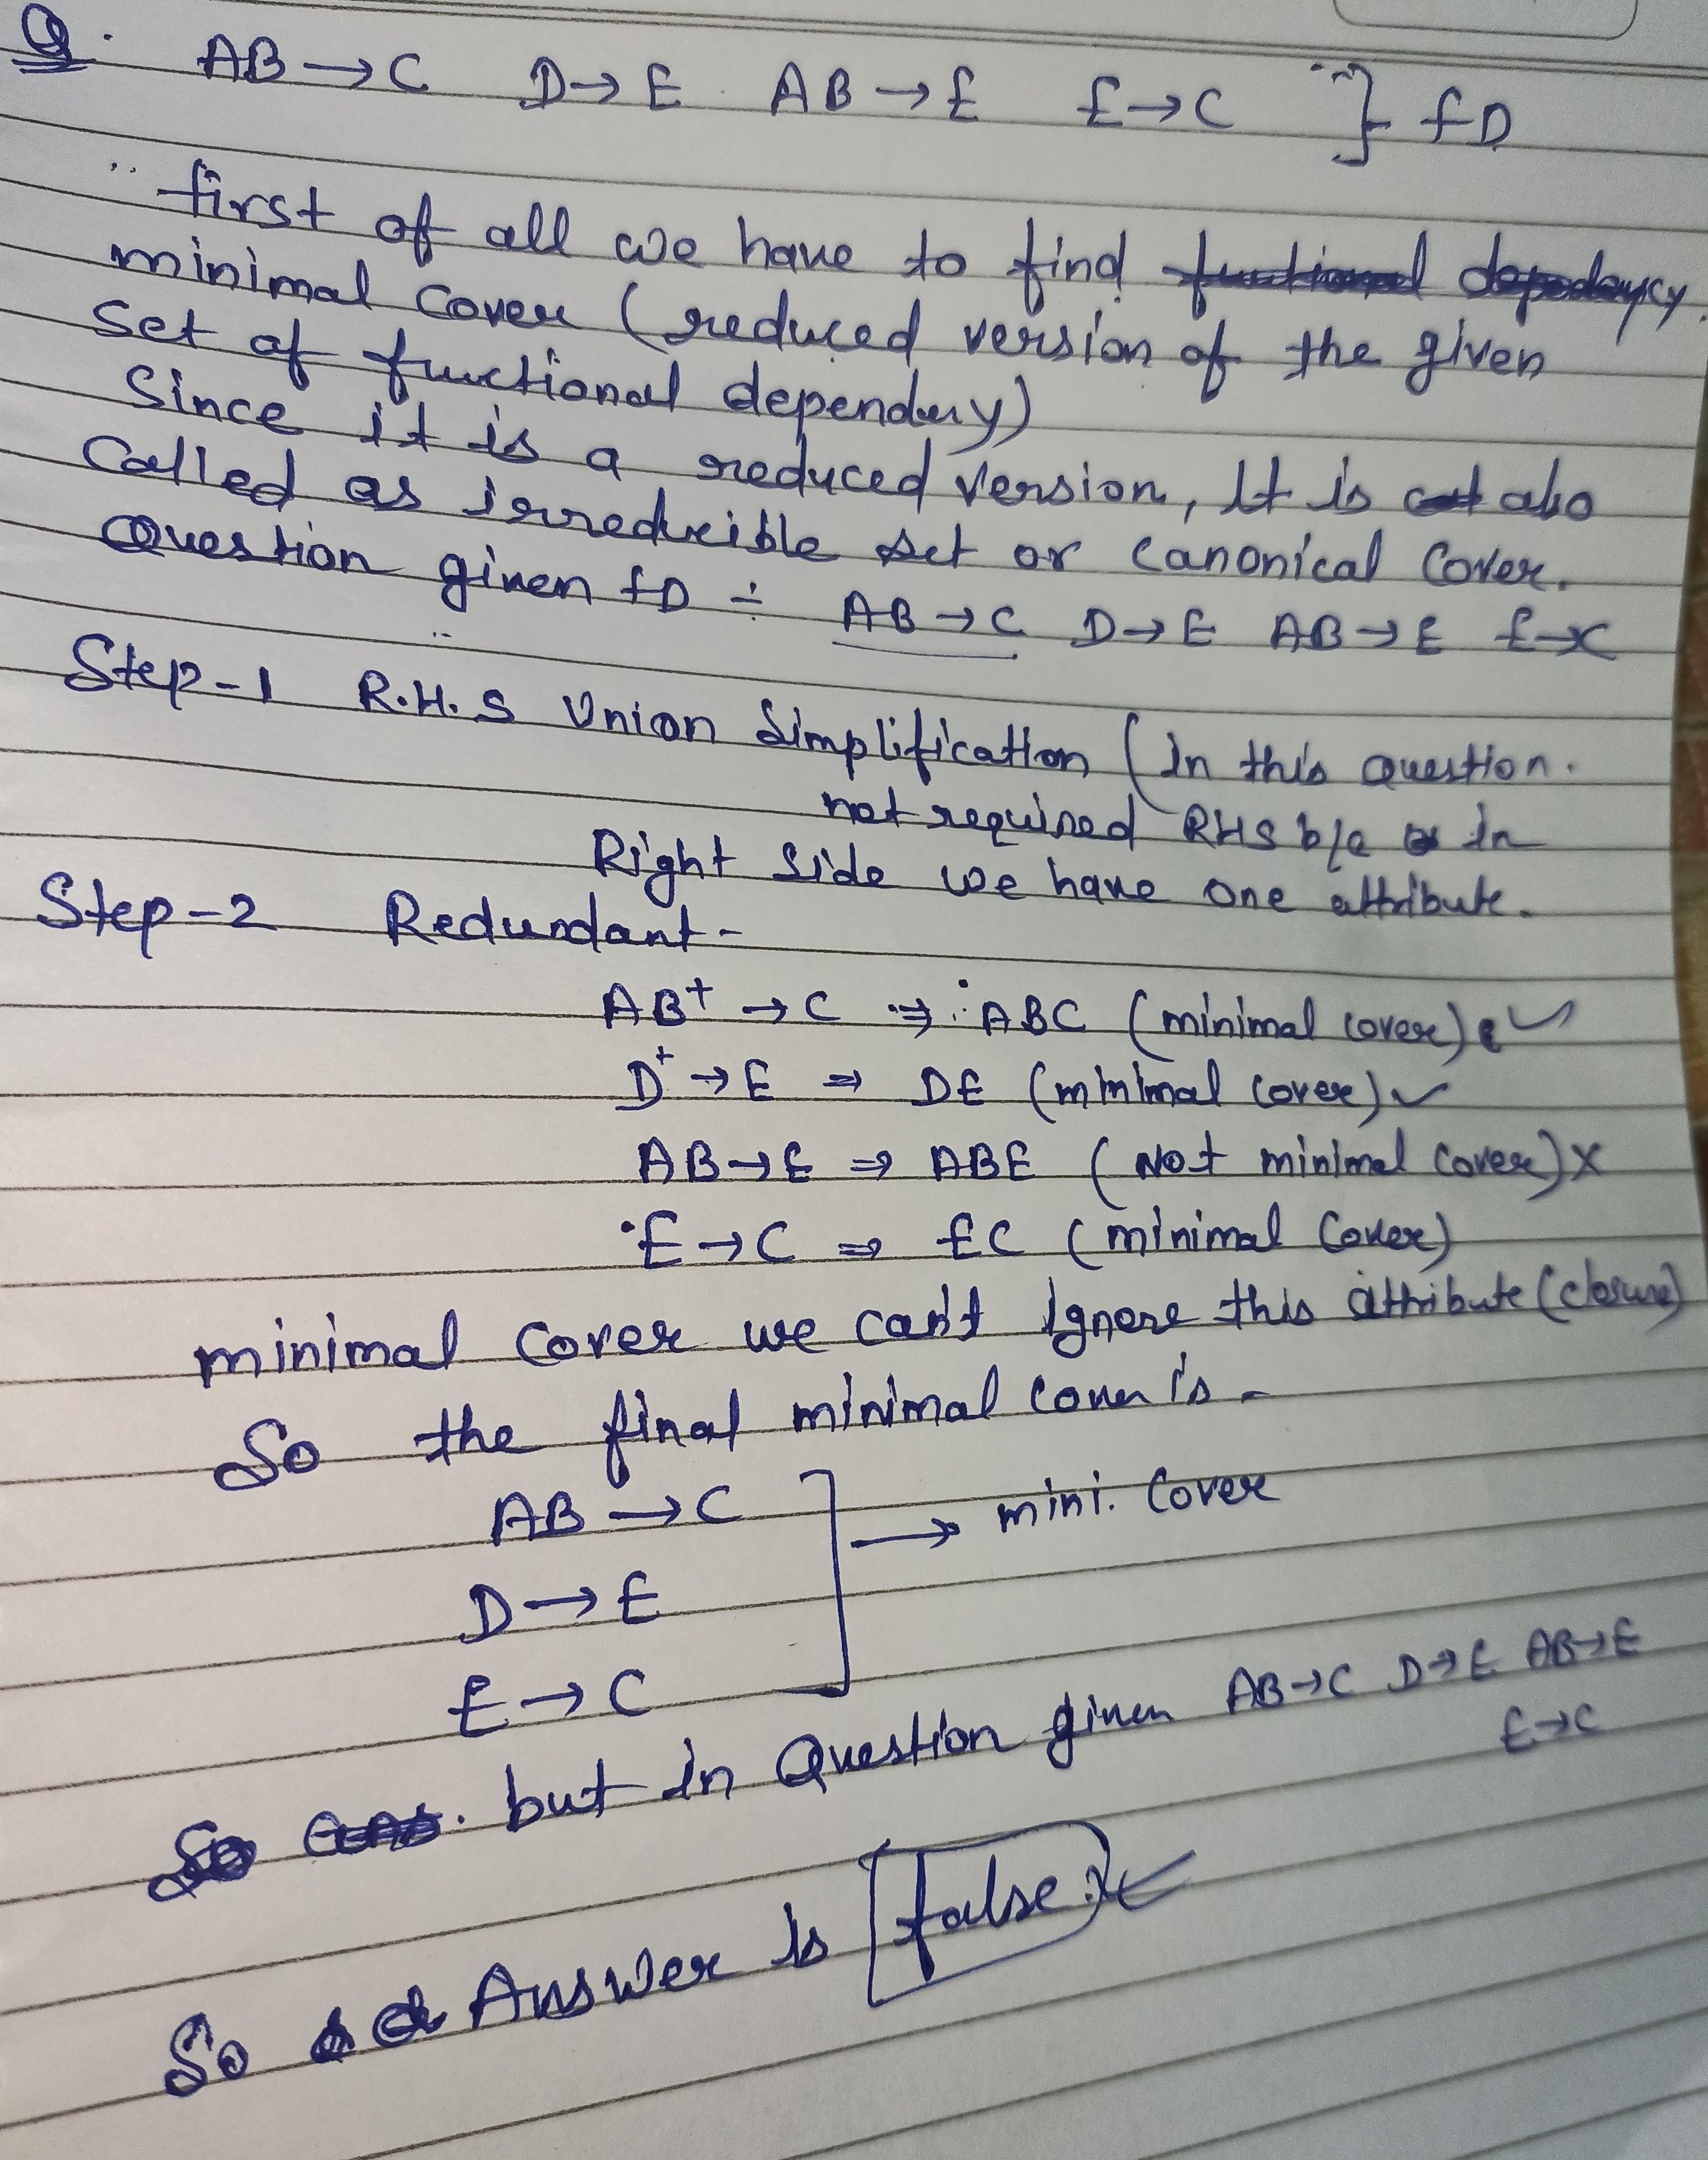 Q. AB → C D → E AB → E E → C } fD
first of all we have to find functional dependency
minimal cover (reduced version of the given
set of functional dependency)
Since it is a reduced version, It is also
Called as irreducible set or Canonical Cover.
Question given fD ÷ AB → C D → E AB → E E → C
Step-1 R.H.S Union Simplification (in this question.
not required RHS b/c in
Right Side we have one attribute.
Step-2 Redundant -
AB⁺ → C ⇒ ABC (minimal cover) ✓
D⁺ → E ⇒ DE (minimal cover) ✓
AB → E ⇒ ABE (Not minimal cover) X
E → C ⇒ EC (minimal Cover)
minimal Cover we can't Ignore this attribute (closure)
So the final minimal cover is -
AB → C
D → E → mini. Cover
E → C
So but in Question given AB → C D → E AB → E
E → C
So Answer is false.